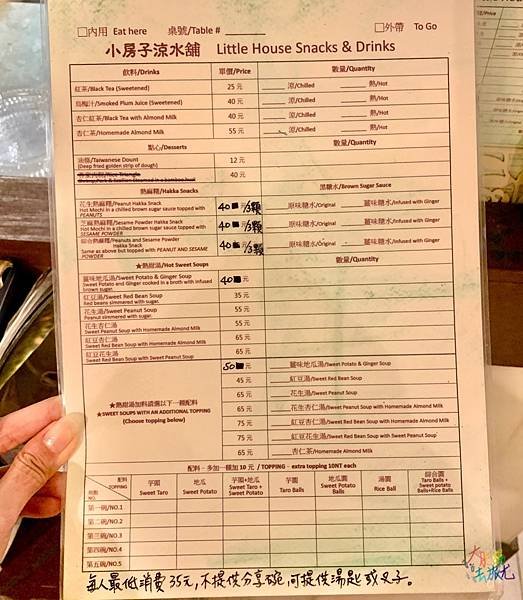 □內用 Eat here 桌號/Table # ________ □外帶 To Go
小房子涼水舖 Little House Snacks & Drinks
飲料/Drinks 單價/Price 數量/Quantity
紅茶/Black Tea (Sweetened) 25 元 涼/Chilled 熱/Hot
烏梅汁/Smoked Plum Juice (Sweetened) 40 元 涼/Chilled 熱/Hot
杏仁紅茶/Black Tea with Almond Milk 40 元 涼/Chilled 熱/Hot
杏仁茶/Homemade Almond Milk 55 元 涼/Chilled 熱/Hot
點心/Desserts 數量/Quantity
油條/Taiwanese Dount 12 元
(Deep fried golden strip of dough)
40 元
熱麻糬/Hakka Snacks 黑糖水/Brown Sugar Sauce
花生熱麻糬/Peanut Hakka Snack 40 元/3顆 原味糖水/Original 薑味糖水/Infused with Ginger
Hot Mochi in a chilled brown sugar sauce topped with
PEANUTS
芝麻熱麻糬/Sesame Powder Hakka Snack 40 元/3顆 原味糖水/Original 薑味糖水/Infused with Ginger
Hot Mochi in a chilled brown sugar sauce topped with
SESAME POWDER
綜合熱麻糬/Peanuts and Sesame Powder 40 元/3顆 原味糖水/Original 薑味糖水/Infused with Ginger
Hakka Snack
Same as above but topped with PEANUT AND SESAME
POWDER
★熱甜湯/Hot Sweet Soups 數量/Quantity
薑味地瓜湯/Sweet Potato & Ginger Soup 40 元
Sweet Potato and Ginger cooked in a broth with infused
brown sugar.
紅豆湯/Sweet Red Bean Soup 35 元
Red beans simmered with sugar.
花生湯/Sweet Peanut Soup 55 元
Peanut simmered with sugar.
花生杏仁湯 55 元
Sweet Peanut Soup with Homemade Almond Milk
紅豆杏仁湯 65 元
Sweet Red Bean Soup with Homemade Almond Milk
紅豆花生湯 65 元
Sweet Red Bean Soup with Sweet Peanut Soup
50 元 薑味地瓜湯/Sweet Potato & Ginger Soup
45 元 紅豆湯/Sweet Red Bean Soup
★熱甜湯加料請選以下一種配料 65 元 花生湯/Sweet Peanut Soup
★SWEET SOUPS WITH AN ADDITIONAL TOPPING 65 元 花生杏仁湯/Sweet Peanut Soup with Homemade Almond Milk
(Choose topping below) 75 元 紅豆杏仁湯/Sweet Red Bean Soup with Homemade Almond Milk
75 元 紅豆花生湯/Sweet Red Bean Soup with Sweet Peanut Soup
65 元 杏仁茶/Homemade Almond Milk
配料－多加一種加 10 元 / TOPPING－extra topping 10NT each
配料 TOPPING 芋頭 Sweet Taro 地瓜 Sweet Potato 芋頭+地瓜 Sweet Taro + Sweet Potato 芋圓 Taro Balls 地瓜圓 Sweet Potato Balls 湯圓 Rice Ball 綜合圓 Taro Balls + Sweet potato Balls+Rice Balls
第一碗/NO.1
第二碗/NO.2
第三碗/NO.3
第四碗/NO.4
第五碗/NO.5
每人最低消費35元,不提供分享碗,可提供湯匙或叉子。